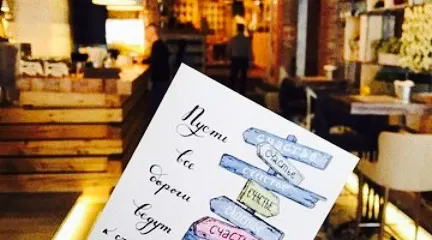 Пусть
все
дороги
ведут
к
счастье
счастье
счастье
счастье
счастье
счастье